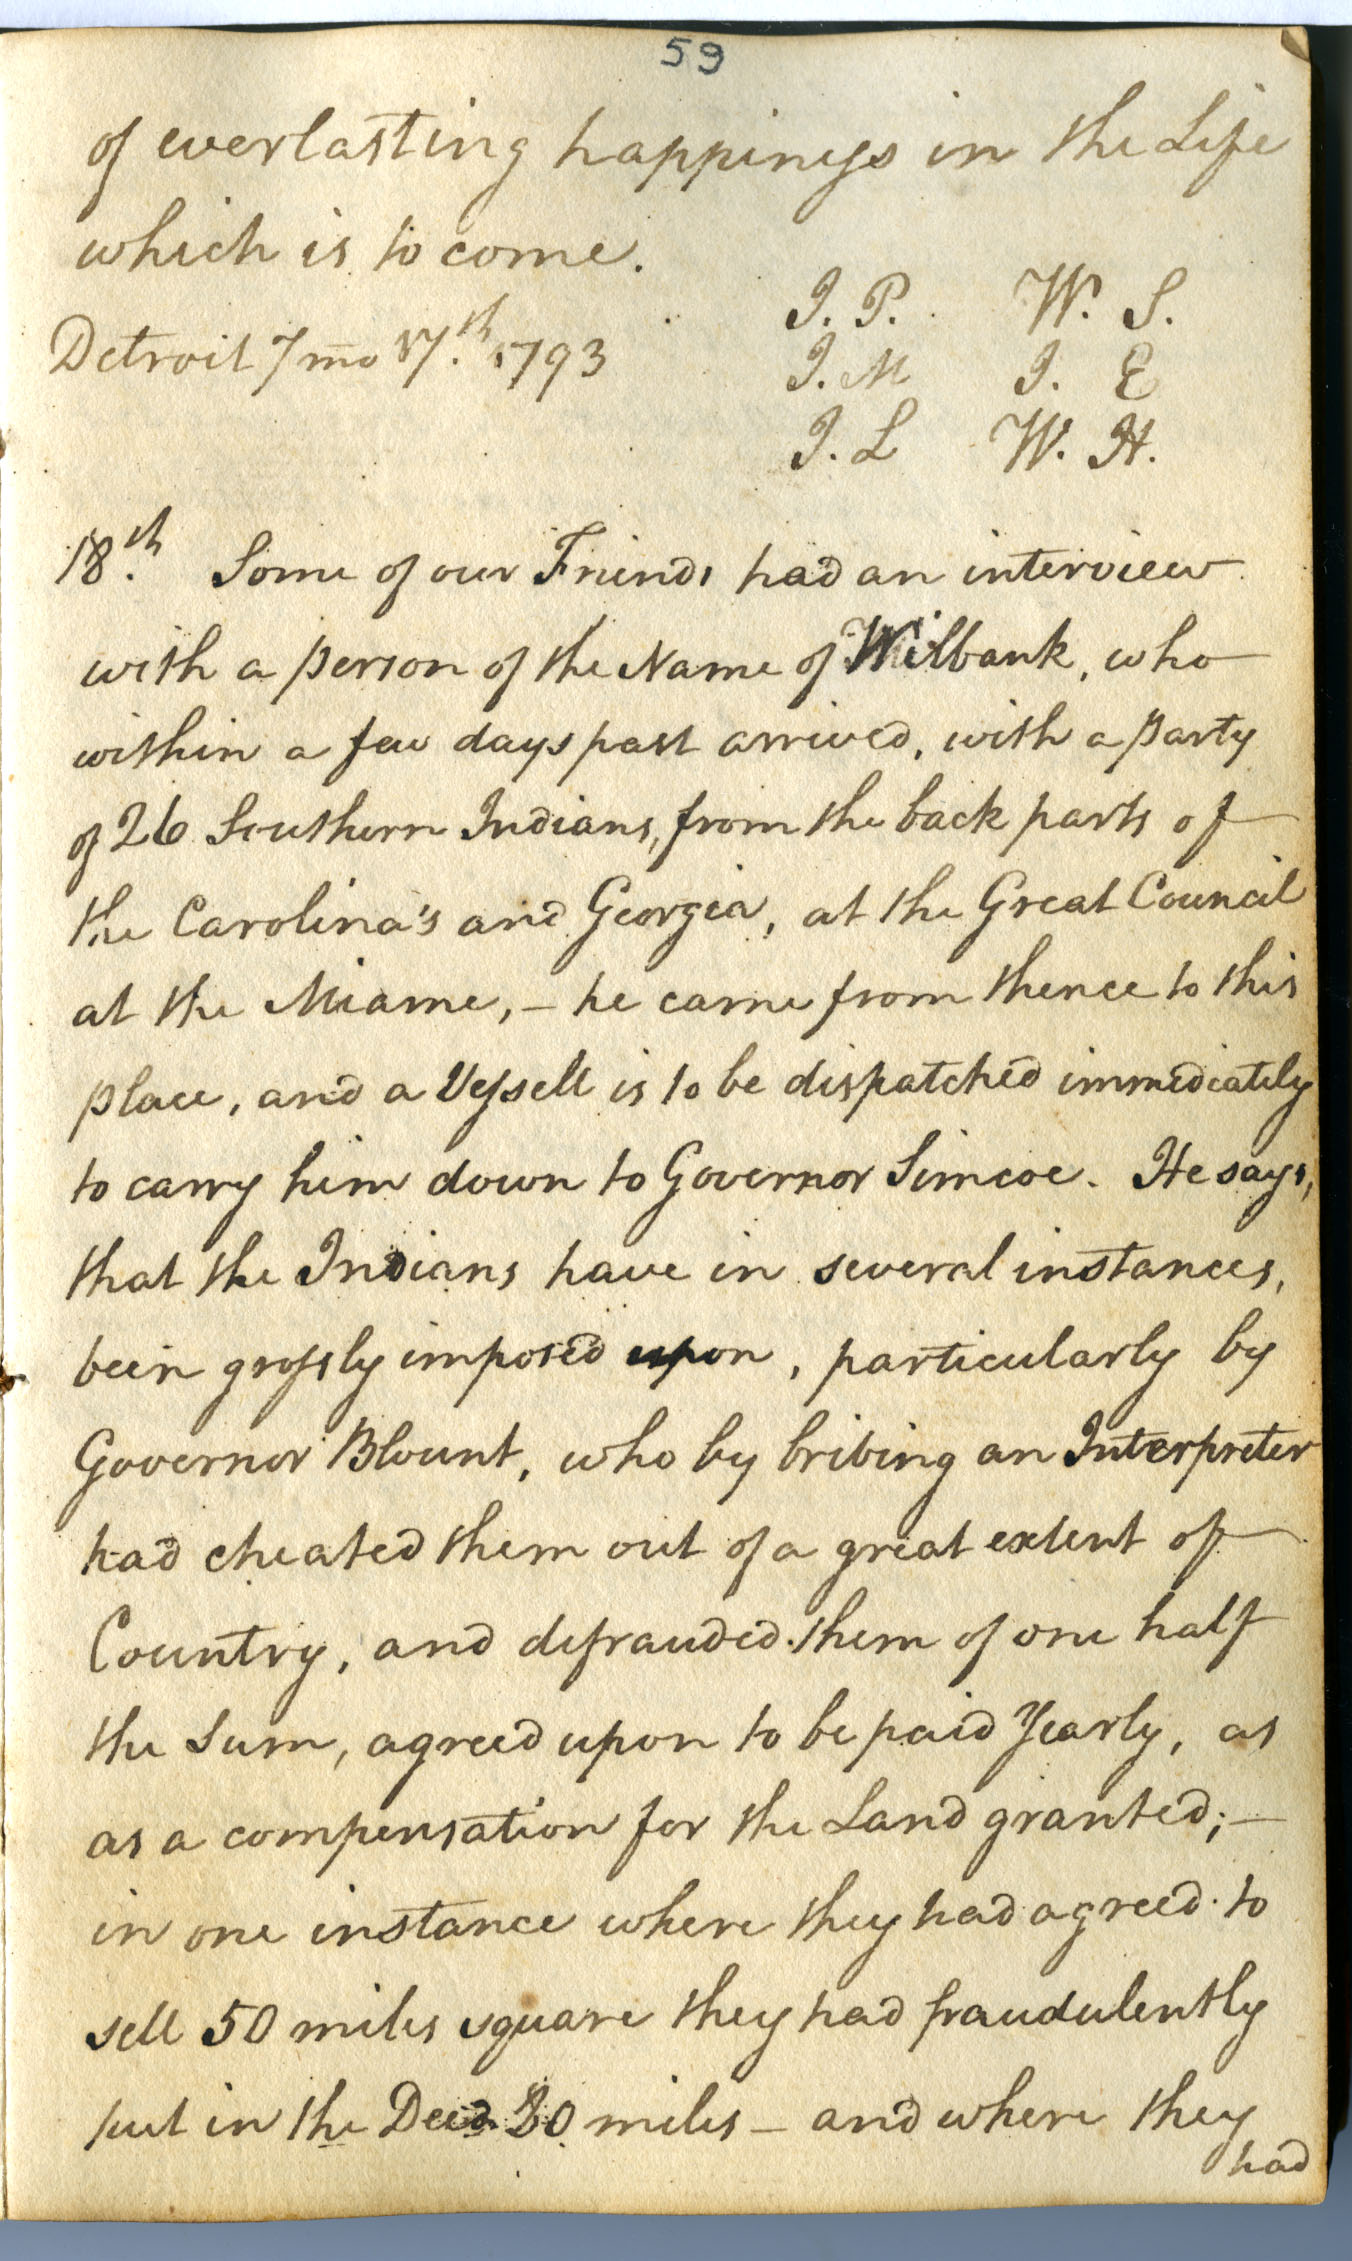 59
of everlasting happiness in the Life
which is to come.
Detroit 7 mo 17.th 1793
J. P. W. S.
J. M J. E
J. L W. H.
18.th Some of our Friends had an interview
with a person of the Name of Wilbank, who
within a few days past arrived, with a party
of 26 Southern Indians, from the back parts of
the Carolina's and Georgia, at the Great Council
at the Miame, – he came from thence to this
place, and a Vessell is to be dispatched immediately
to carry him down to Governor Simcoe. He says,
that the Indians have in several instances,
been grossly imposed upon, particularly by
Governor Blount, who by bribing an Interpreter
had cheated them out of a great extent of
Country, and defrauded them of one half
the Sum, agreed upon to be paid Yearly, as
as a compensation for the Land granted; –
in one instance where they had agreed to
sell 50 miles square they had fraudulently
put in the Deed 80 miles – and where they
had